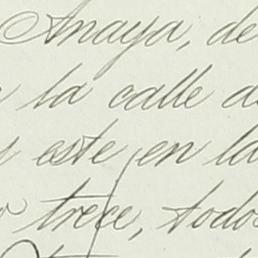 Anaya, de
la calle de
y este en la
trece, todos